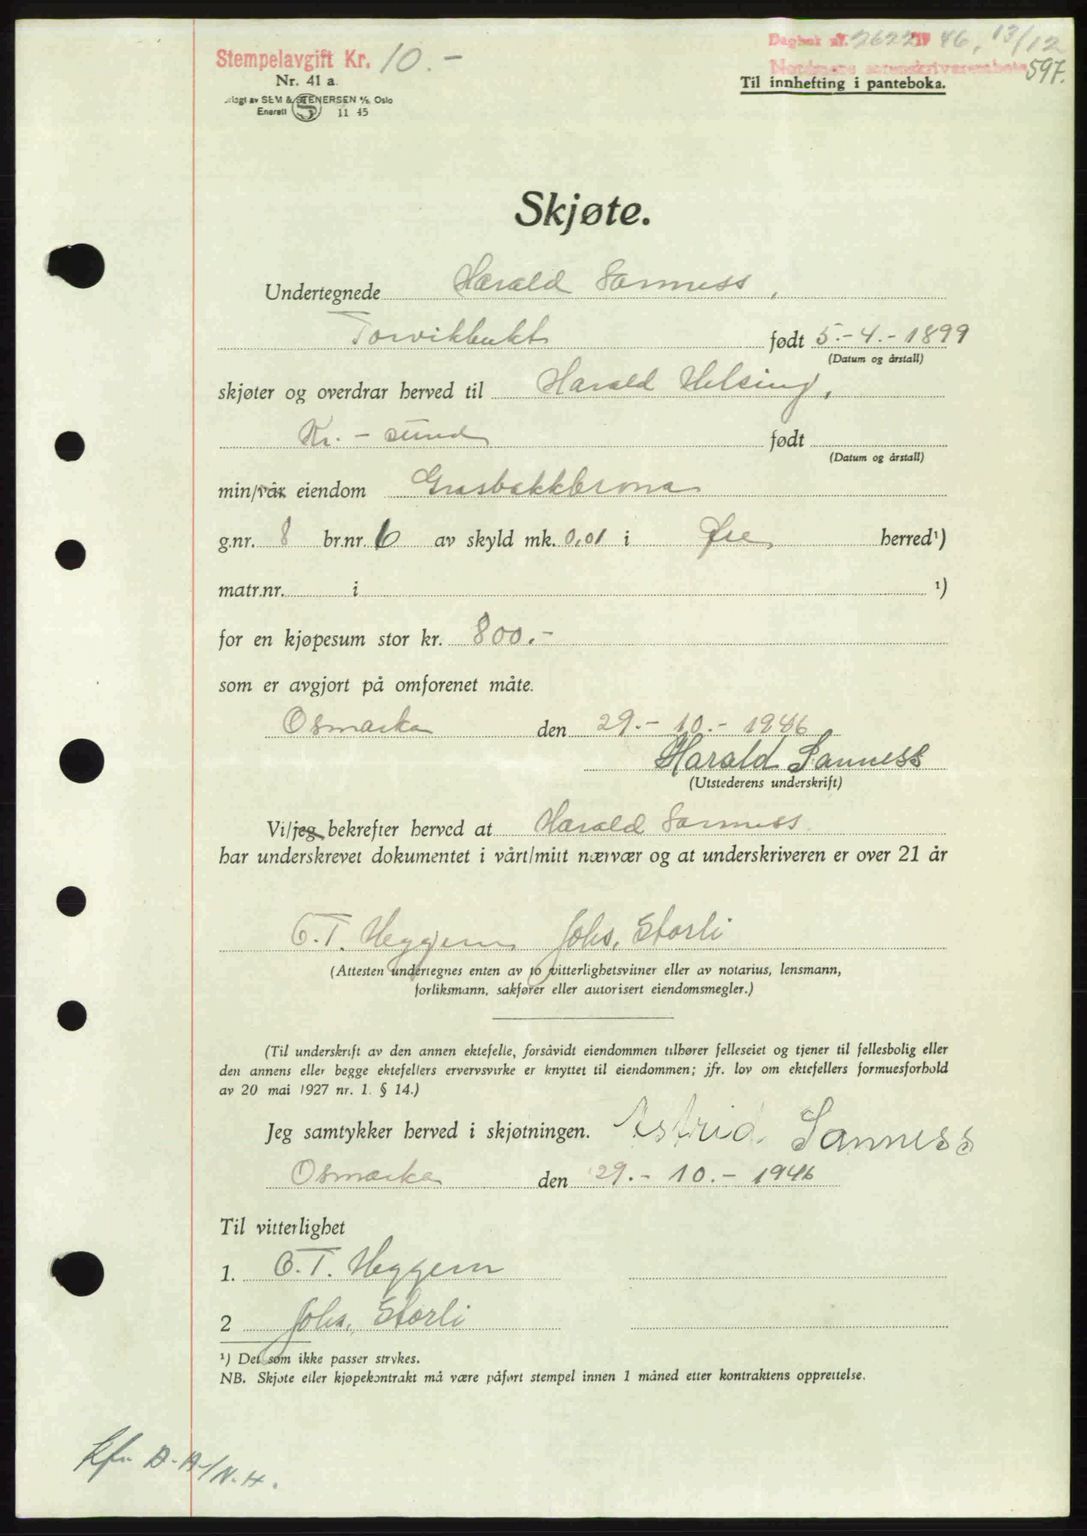 Stempelavgift Kr. 10.-
Dagbok nr. 2622 19 46, 13/12
Nr. 41 a.
597.
Til innhefting i panteboka.
SEM & STENERSEN A/S, Oslo
Enerett S 11 45
Skjøte.
Undertegnede Harald Sanness,
Torvikbukt født 5.-4.-1899
(Datum og årstall)
skjøter og overdrar herved til Harald Helsing,
Kr.-sund født
(Datum og årstall)
min/vår eiendom Grasbakkbruna
g.nr. 8 br.nr. 6 av skyld mk. 0,01 i Øre herred¹)
matr.nr. i ¹)
for en kjøpesum stor kr. 800.-
som er avgjort på omforenet måte.
Osmarka den 29.-10.-1946
Harald Sanness
(Utstederens underskrift)
Vi/jeg bekrefter herved at Harald Sanness
har underskrevet dokumentet i vårt/mitt nærvær og at underskriveren er over 21 år
O.T. Heggem Johs. Storli
(Attesten undertegnes enten av to vitterlighetsvitner eller av notarius, lensmann,
forliksmann, sakfører eller autorisert eiendomsmegler.)
(Til underskrift av den annen ektefelle, forsåvidt eiendommen tilhører felleseiet og tjener til fellesbolig eller
den annens eller begge ektefellers ervervsvirke er knyttet til eiendommen; jfr. lov om ektefellers formuesforhold
av 20 mai 1927 nr. 1. § 14.)
Jeg samtykker herved i skjøtningen. Astrid Sanness
Osmarka den 29.-10.-1946
Til vitterlighet
1. O.T. Heggem
2 Johs. Storli
¹) Det som ikke passer strykes.
NB. Skjøte eller kjøpekontrakt må være påført stempel innen 1 måned etter kontraktens opprettelse.